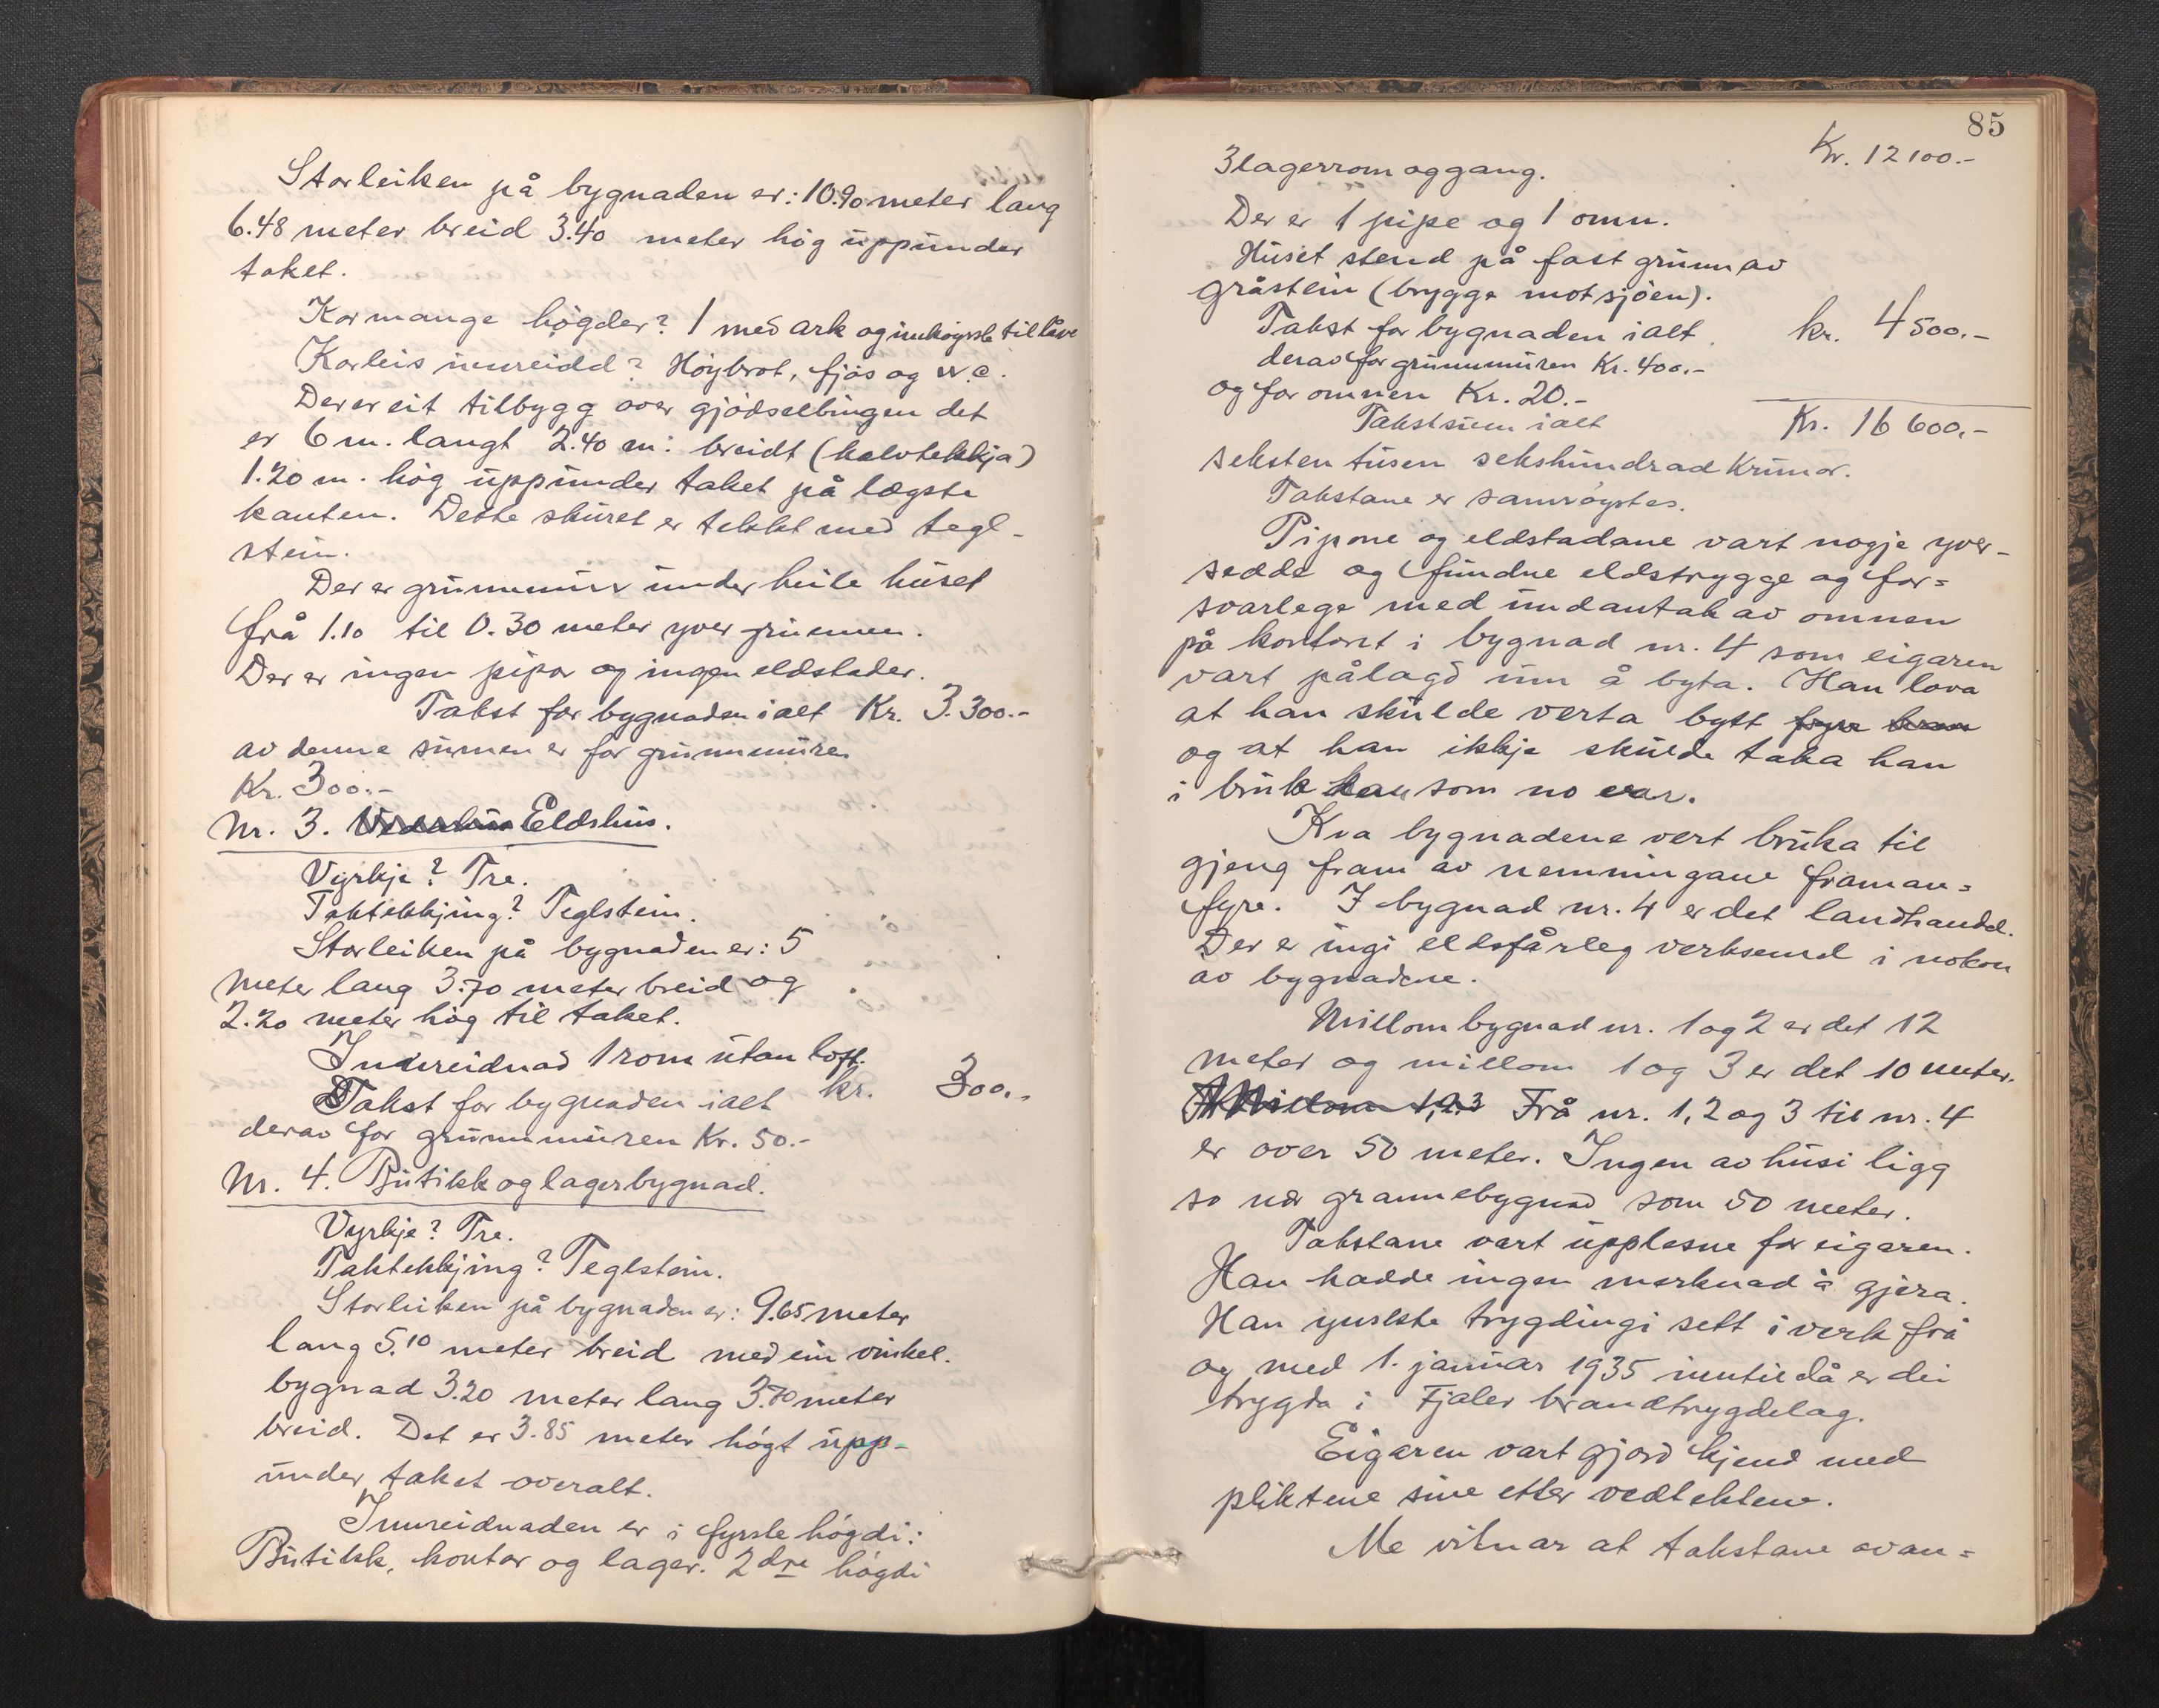 Storleiken på bygnaden er: 10.90 meter lang
6.48 meter breid 3.40 meter hög uppunder
taket.
Kor mange högder? 1 med ark og innköyrsle til låve
Korleis innreidd? Höybrot, fjös og w.c.
Der er eit tilbygg over gjödselbingen det
er 6 m. langt 2.40 m: breidt (halvtekkja)
1.20 m. hög uppunder taket på lægste
kanten. Dette skuret er tekkt med tegl-
stein.
Der er grunnmur under heile huset
frå 1.10 til 0.30 meter yver grunnen.
Der er ingen pipor og ingen eldstader.
Takst for bygnaden ialt Kr. 3.300.-
av denne sumen er for grunnmuren
Kr. 300.-
Nr. 3. Eldshus.
Vyrkje? Tre.
Taktekkjing? Teglstein.
Storleiken på bygnaden er: 5
meter lang 3.70 meter breid og
2.20 meter hög til taket.
Innreidnad 1 rom utan loft.
Takst for bygnaden ialt kr. 300.-
derav for grunnmuren Kr. 50.-
Nr. 4. Butikk og lagerbygnad.
Vyrkje? Tre.
Taktekkjing? Teglstein.
Storleiken på bygnaden er: 9.65 meter
lang 5.10 meter breid med ein vinkel-
bygnad 3.20 meter lang 3.70 meter
breid. Det er 3.85 meter högt upp-
under taket overalt.
Innreidnaden er i fyrste högdi:
Butikk, kontor og lager. 2dre högdi
85
Kr. 12100.-
3 lagerrom og gang.
Der er 1 pipe og 1 omn.
Huset stend på fast grunn av
gråstein (brygge mot sjöen).
Takst for bygnaden ialt kr. 4500.-
derav for grunnmuren Kr. 400.-
og for omnen Kr. 20.-
Takstsum ialt Kr. 16600.-
seksten tusen sekshundrad Krunor.
Takstane er samröystes.
Pipone og eldstadane vart nogje yver-
sedde og fundne eldstrygge og for=
svarlege med undantak av omnen
på kontoret i bygnad nr. 4 som eigaren
vart pålagd um å byta. Han lova
at han skulde verta bytt fyre han
og at han ikkje skulde taka han
i bruk han som no var.
Kva bygnadene vert bruka til
gjeng fram av nemningane framan=
fyre. I bygnad nr. 4 er det landhandel.
Der er ingi eldsfårleg verksemd i nokon
av bygnadene.
Millom bygnad nr. 1 og 2 er det 12
meter og millom 1 og 3 er det 10 meter.
Millom 1, 2, 3 Frå nr. 1, 2 og 3 til nr. 4
er over 50 meter. Ingen av husi ligg
so nær grannebygnad som 50 meter.
Takstane vart upplesne for eigaren.
Han hadde ingen merknad å gjera.
Han ynskte trygdingi sett i verk frå
og med 1. januar 1935 inntil då er dei
trygda i Fjaler brandtrygdelag.
Eigaren vart gjord kjend med
pliktene sine etter vedtektene.
Me vitnar at takstane ovan=